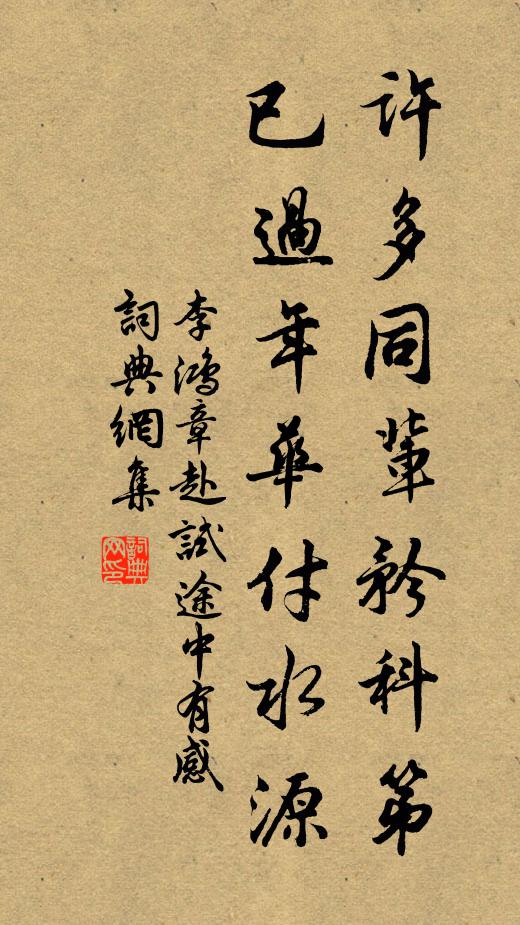 許多同輩矜科第
已過年華付水源
李鴻章赴試途中有感
詞典網集
詞典網印